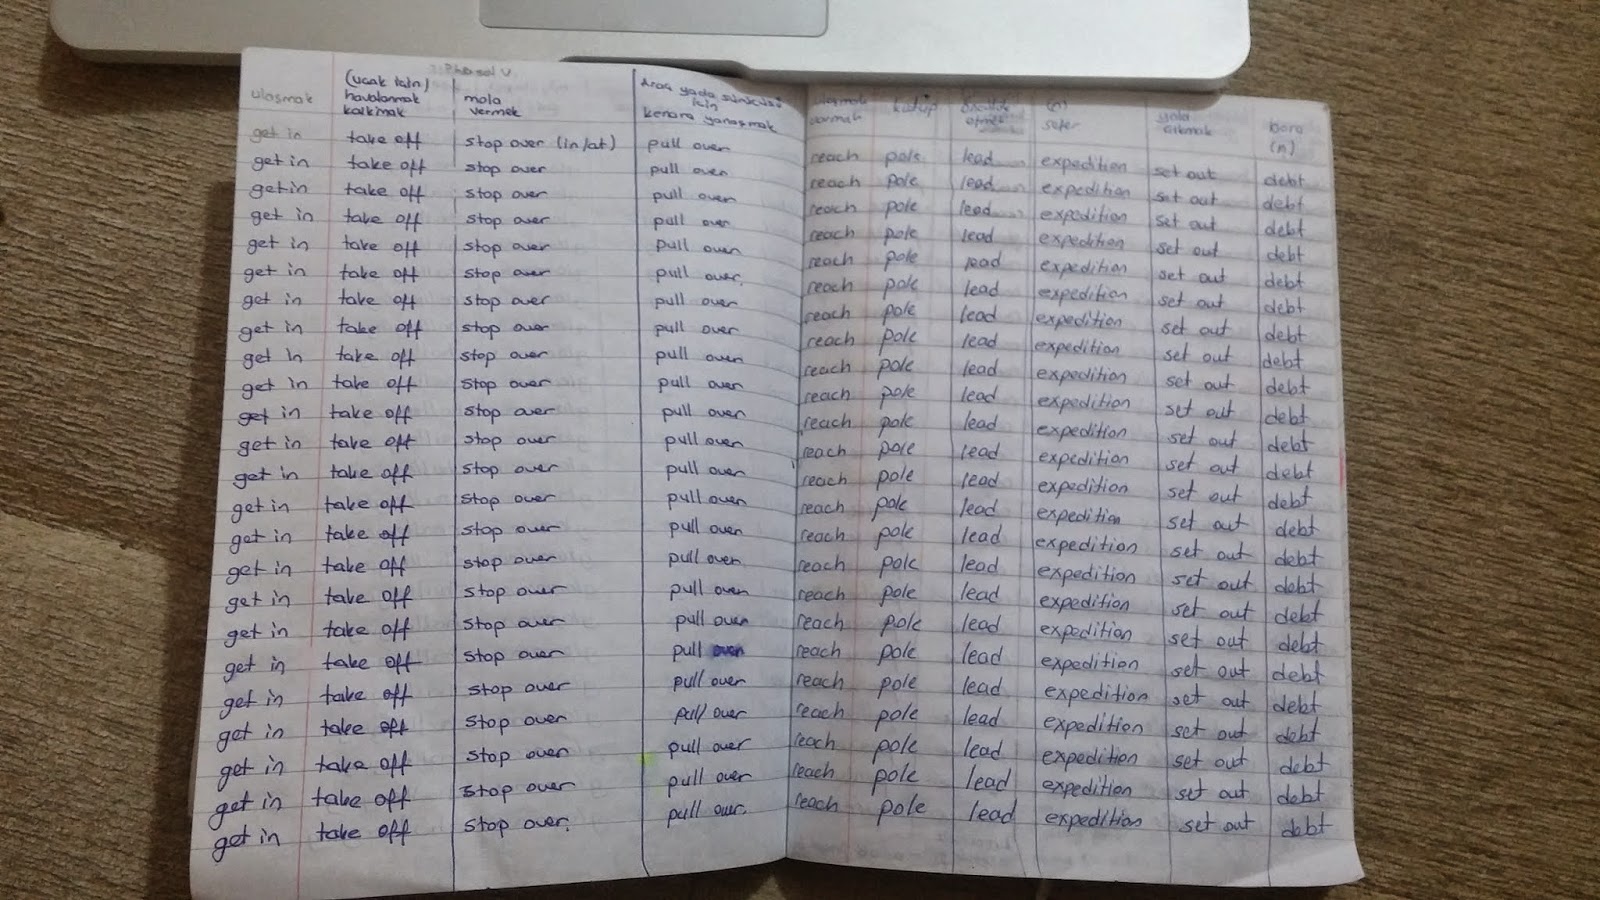 Phrasal V.
ulaşmak
(uçak için)
havalanmak
kalkmak
mola
vermek
Araç yada sürücüsü
için
kenara yanaşmak
get in take off stop over (in/at) pull over
get in take off stop over pull over
get in take off stop over pull over
get in take off stop over pull over
get in take off stop over pull over
get in take off stop over pull over.
get in take off stop over pull over
get in take off stop over pull over
get in take off stop over pull over
get in take off stop over pull over
get in take off stop over pull over
get in take off stop over pull over
get in take off stop over pull over
get in take off stop over pull over
get in take off stop over pull over
get in take off stop over pull over
get in take off stop over pull over
get in take off stop over pull over
get in take off stop over pull over
get in take off stop over pull over
get in take off stop over pull over
get in take off stop over pull over
get in take off stop over pull over
get in take off stop over. pull over.
ulaşmak
varmak
kutup
etmek
(n)
sefer
yola
çıkmak
borç
(n)
reach pole lead expedition set out debt
reach pole lead expedition set out debt
reach pole lead expedition set out debt
reach pole lead expedition set out debt
reach pole lead expedition set out debt
reach pole lead expedition set out debt
reach pole lead expedition set out debt
reach pole lead expedition set out debt
reach pole lead expedition set out debt
reach pole lead expedition set out debt
reach pole lead expedition set out debt
reach pole lead expedition set out debt
reach pole lead expedition set out debt
reach pole lead expedition set out debt
reach pole lead expedition set out debt
reach pole lead expedition set out debt
reach pole lead expedition set out debt
reach pole lead expedition set out debt
reach pole lead expedition set out debt
reach pole lead expedition set out debt
reach pole lead expedition set out debt
reach pole lead expedition set out debt
reach pole lead expedition set out debt
reach pole lead expedition set out debt